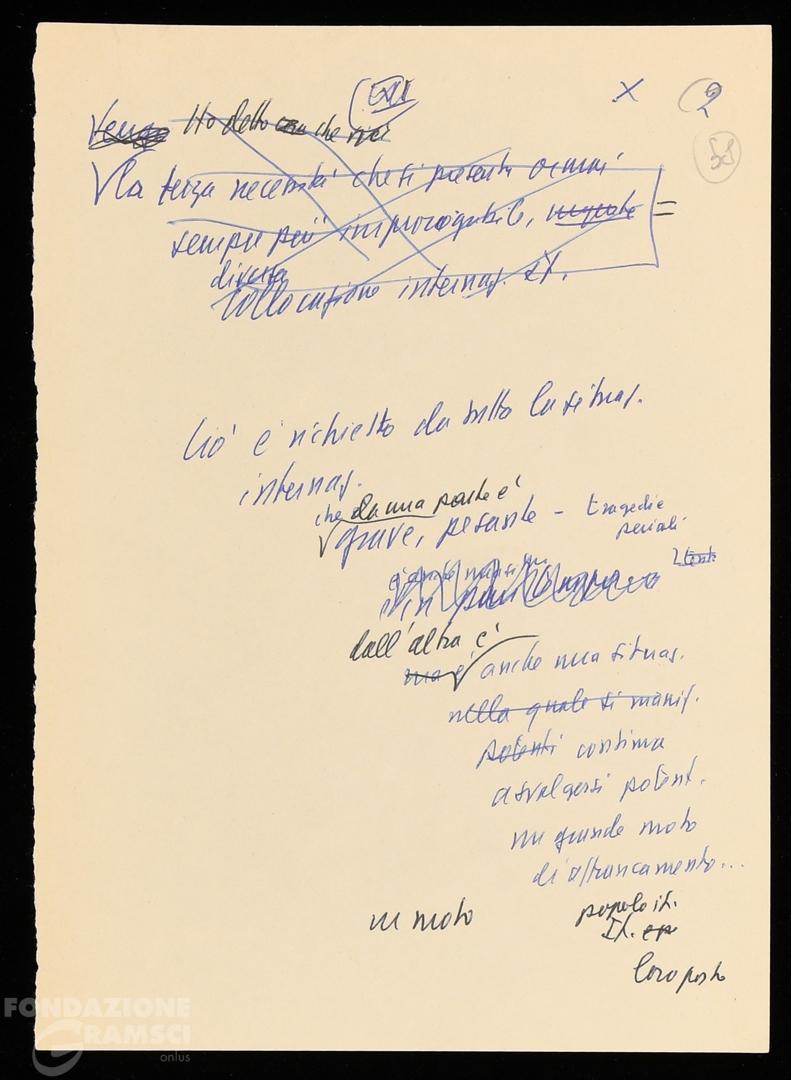 XVI
X
2
Vengo Ho detto che
La terza necessità che si presenta ormai
sempre più improrogabile,
diversa
collocazione internaz. It.
Ciò è richiesto da tutta la situaz.
internaz.
che da una parte è
grave, pesante - tragedie
in
dall'altra è
ma è anche una situaz.
nella quale si manif.
potenti continua
a svolgersi potent.
un grande moto
di affrancamento...
in moto popolo it.
It.
loro posto
FONDAZIONE
GRAMSCI
onlus